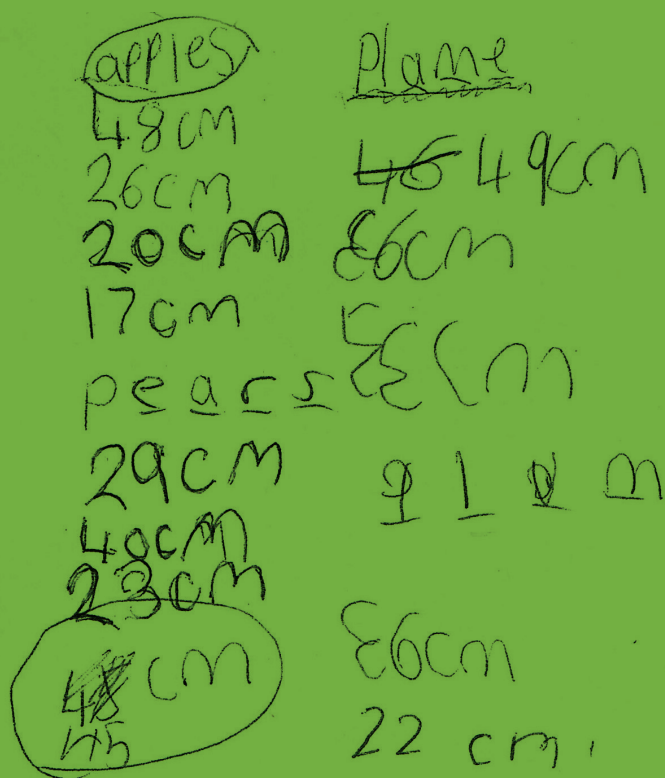 apples
48cm
26cm
20cm
17cm
pears
29cm
40cm
23cm
cm
45
Plame
49cm
36cm
cm
36cm
22 cm.